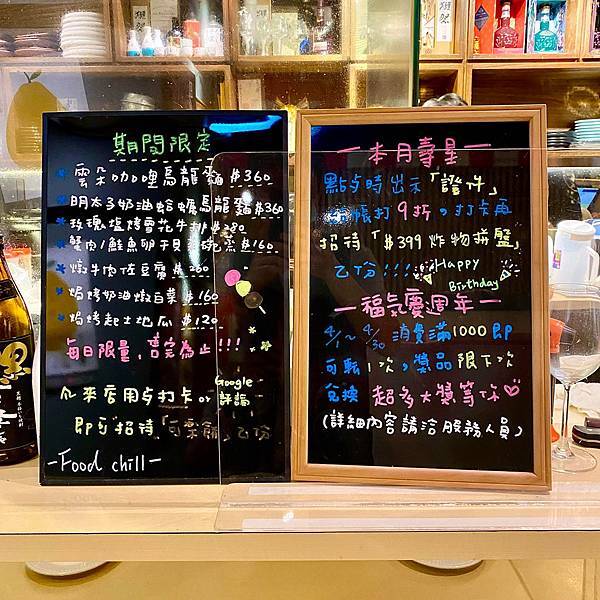 期間限定
雲朵咖哩烏龍麵 $360
明太子奶油蛤蠣烏龍麵 $360
玫瑰塩烤雪花牛排 $380
蟹肉/鮭魚卵干貝茶碗蒸 $160
燉牛肉佐豆腐 $260
焗烤奶油燉白菜 $160
焗烤起士地瓜 $120
每日限量,售完為止!!!
來店用点打卡 or Google 評論
即可招待「可樂餅」乙份
-Food chill-
一本月壽星一
點点時出示「證件」
帳打9折,打卡再
招待「$399炸物拼盤」
乙份!!!
Happy Birthday
一福気慶週年一
4/1~4/30 消費滿1000即
可転1次,獎品限下次
兌換 超多大獎等你♡
(詳細內容請洽服務人員)